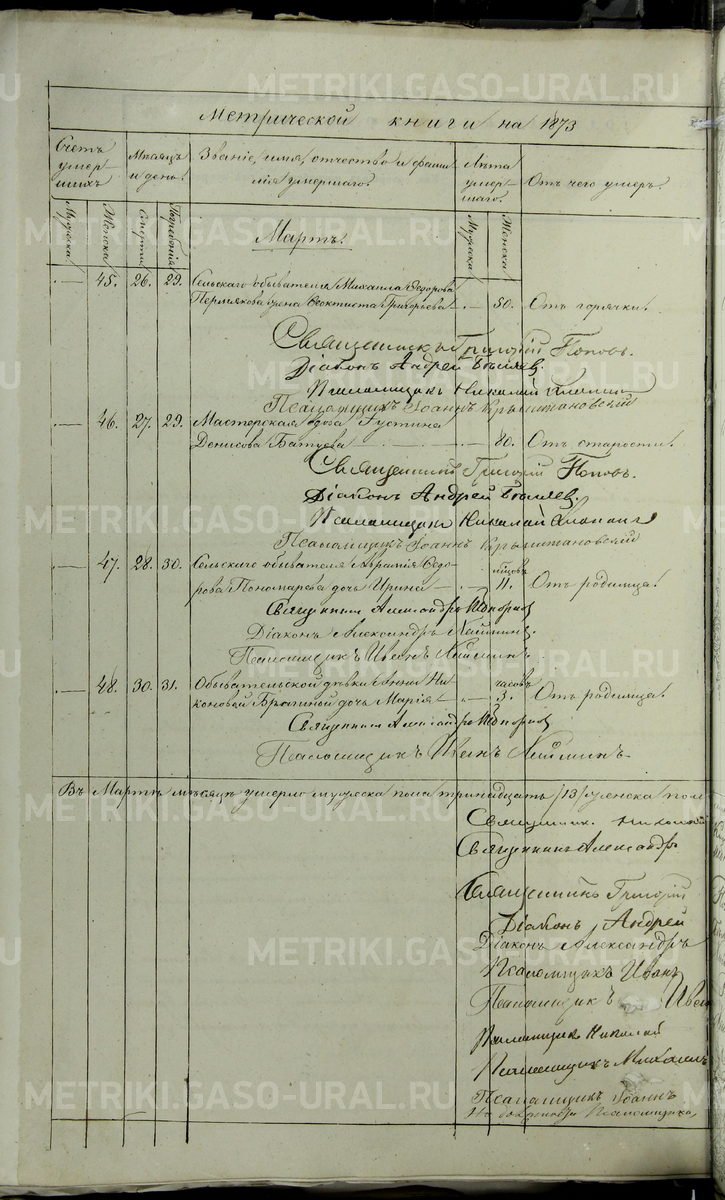 METRIKI.GASO-URAL.RU
Метрической книги на 1873
Счетъ умершихъ
Мѣсяцъ и день.
Званіе, имя, отчество и фамилія умершаго.
Лѣта умершаго.
Отъ чего умеръ.
Мужеска
Женска
Смерти
Погребенія
Мартъ.
Мужеска
Женска
45. 26. 29. Сельскаго обывателя Михаила Ѳедорова
Пермякова жена Ѳеоктиста Григорьева 50. Отъ горячки.
Священникъ Григорій Поповъ.
Діаконъ Андрей
Псаломщикъ Николай
Псаломщикъ Іоаннъ Крыжановскій
46. 27. 29. Мастерская вдова Устина
Денисова Батуева 80. Отъ старости.
Священникъ Григорій Поповъ.
Діаконъ Андрей
Псаломщикъ Николай
Псаломщикъ Іоаннъ Крыжановскій
47. 28. 30. Сельскаго обывателя Авраамія Ѳедо-
рова Пономарева дочь Ирина мѣсяцовъ 11. Отъ родимца.
Священникъ Александръ Топорковъ
Діаконъ Александръ
Псаломщикъ Иванъ
48. 30. 31. Обывательской дѣвки Анны Ни-
коновой дочь Марія часовъ 3. Отъ родимца.
Священникъ Александръ Топорковъ
Псаломщикъ Иванъ
Въ Мартѣ мѣсяцѣ умерло мужеска пола тринадцать /13/ женска пол
Священникъ Николай
Священникъ Александръ
Священникъ Григорій
Діаконъ Андрей
Діаконъ Александръ
Псаломщикъ Иванъ
Псаломщикъ Иванъ
Псаломщикъ Николай
Псаломщикъ Михаилъ
Псаломщикъ Іоаннъ
Псаломщика